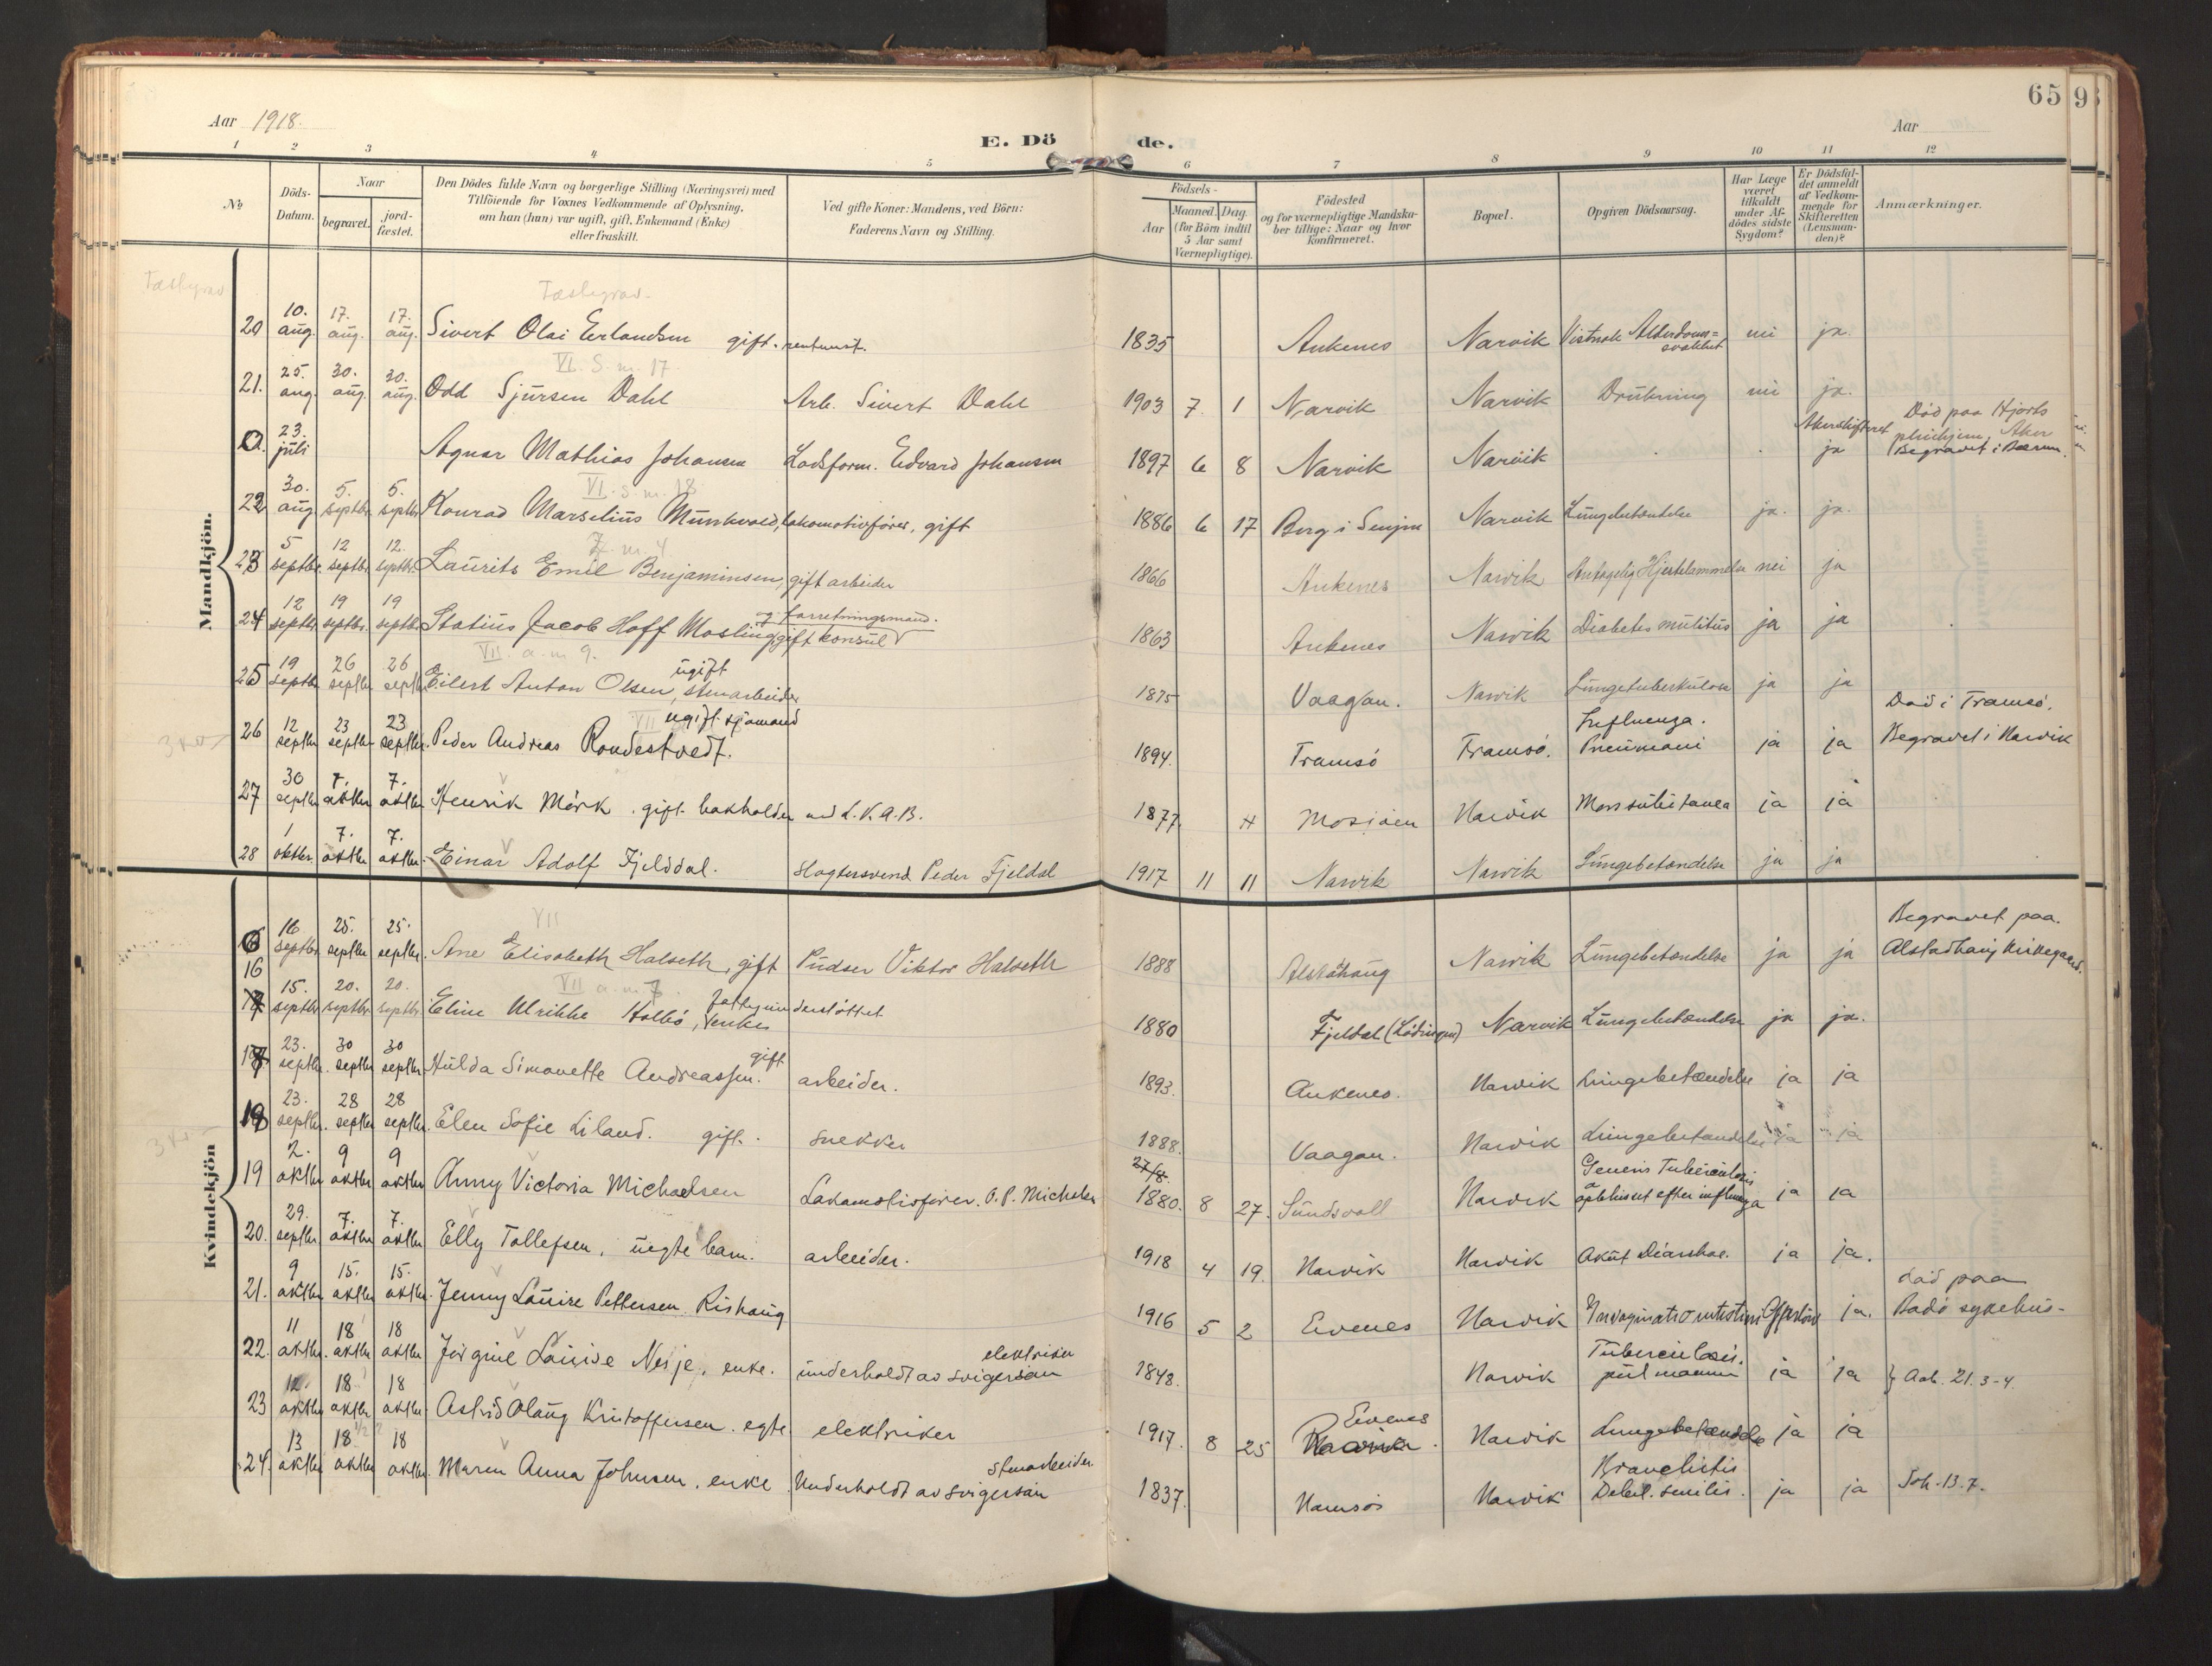 65
Aar 1918.
E. Döde.
Aar
1 2 3 4 5 6 7 8 9 10 11 12
No
Döds-Datum.
Naar
begravet.
jord-fæstet.
Den Dödes fulde Navn og borgerlige Stilling (Næringsvei) med
Tilföiende for Voxnes Vedkommende af Oplysning,
om han (hun) var ugift, gift, Enkemand (Enke)
eller fraskilt.
Ved gifte Koner: Mandens, ved Börn:
Faderens Navn og Stilling.
Födsels-
Aar
Maaned. Dag.
(for Börn indtil
5 Aar samt
Værnepligtige).
Födested
og for værnepligtige Mandska-
ber tillige: Naar og hvor
konfirmeret.
Bopæl.
Opgiven Dödsaarsag.
Har Læge
været
tilkaldt
under Af-
dödes sidste
Sygdom?
Er Dödsfal-
det anmeldt
af Vedkom-
mende for
Skifteretten
(Lensman-
den)?
Anmærkninger.
Mandkjön.
20 10. aug. 17. aug. 17. aug. Sivert Olai Erlandsen gift. 1835 Ankenes Narvik Alderdoms= nei ja.
VI. S. m. 17
21. 25. aug. 30. aug. 30. aug. Odd Sjursen Dahl Arb. Sivert Dahl 1903 7. 1 Narvik Narvik Drukning nei ja.
23. juli Agnar Mathias Johansen Edvard Johansen 1897 6 8 Narvik Narvik ja Död paa Hjorts pleiehjem, Aker Begravet i Bærum.
VI. s. m. 18
22 30. aug 5. septbr 5. septbr Konrad Marselius Munkvold, lokomotivförer, gift 1886 6 17 Berg i Senjen Narvik Lungebetændelse ja. ja.
23 5 septbr. 12 septbr. 12. septbr. Laurits Emil Benjaminsen, gift arbeider 1866 Ankenes Narvik Antagelig Hjertelammelse nei ja
24 12 septbr. 19 septbr. 19 septbr. Statius Jacob Hoff Mosling, gift konsul og forretningsmand. 1863 Ankenes Narvik Diabetes ja ja
VII. a. m 9.
25 19 septbr. 26 septbr 26 septbr Eilert Anton Olsen, ugift stenarbeider 1875 Vaagan. Narvik Lungetuberkulose ja ja
26 12 septbr 23 septbr 23 septbr. Peder Andreas Rondestvedt. ugift sjömand 1894. Tromsö Tromsö. Influenza. Pneumoni ja ja Död i Tromsö. Begravet i Narvik
27 30 septbr 7. oktbr 7. oktbr Henrik Mörk. gift. bokholder ved L.K.A.B. 1877. Mosjöen Narvik Mors subitanea ja ja
28 1 oktbr. 7. oktbr 7. oktbr. Einar Adolf Fjelddal. Slagtersvend Peder Fjeldal 1917 11 11 Narvik Narvik Lungebetændelse ja ja
Kvindekjön
VII
16 16 septbr. 25. septbr 25. septbr. Ane Elisabeth Halseth, gift Pudser Viktor Halseth 1888 Alstahaug Narvik Lungebetændelse ja ja Begravet paa. Alstadhaug kirkegaard.
VII a. m 7
15. septbr. 20. septbr. 20. septbr. Eline Ulrikke Holbö, enke fattigunderstöttet 1880 Fjeldal (Lödingen) Narvik Lungebetændelse ja ja.
17 23. septbr. 30 septbr 30 septbr Hulda Simonette Andreassen. gift arbeider. 1893. Ankenes. Narvik Lungebetændelse ja ja
18 23. septbr. 28 septbr 28 septbr. Elen Sofie Liland. gift. snekker 1888. Vaagan. Narvik Lungebetændelse ja ja
19 2. oktbr 9 oktbr 9 oktbr Anny Victoria Michaelsen Lokomotivförer. O. P. 27/8. 1880. 8 27. Sundsvall Narvik Tuberculosis efter influenza ja ja
20. 29. septbr. 7. oktbr 7. oktbr Elly Tollefsen, uegte barn. arbeider. 1918 4 19. Narvik Narvik Akut Diarrhoe. ja ja.
21. 9 oktbr 15. oktbr 15. oktbr. Jenny Louise Pettersen Rishaug 1916 5 2 Evenes Narvik Invaginatio intestini ja. död paa Bodö sykehus-
22. 11 oktbr. 18 oktbr 18 oktbr Jörgine Louise Nesje, enke. underholdt av svigersön elektriker 1848. Narvik Tuberculosis. ja ja } Aab. 21. 3-4.
23 12. oktbr 18 oktbr 18 oktbr Astrid Olaug Kristoffersen. egte elektriker 1917. 8 25 Evenes Narvik Lungebetændelse ja ja
24. 13 oktbr 18 oktbr 18 oktbr. Maren Anna Johnsen. enke Underholdt av svigersön stenarbeider 1837. Namsos Narvik Bronchitis Debil. senilis. ja ja Joh. 13. 7.